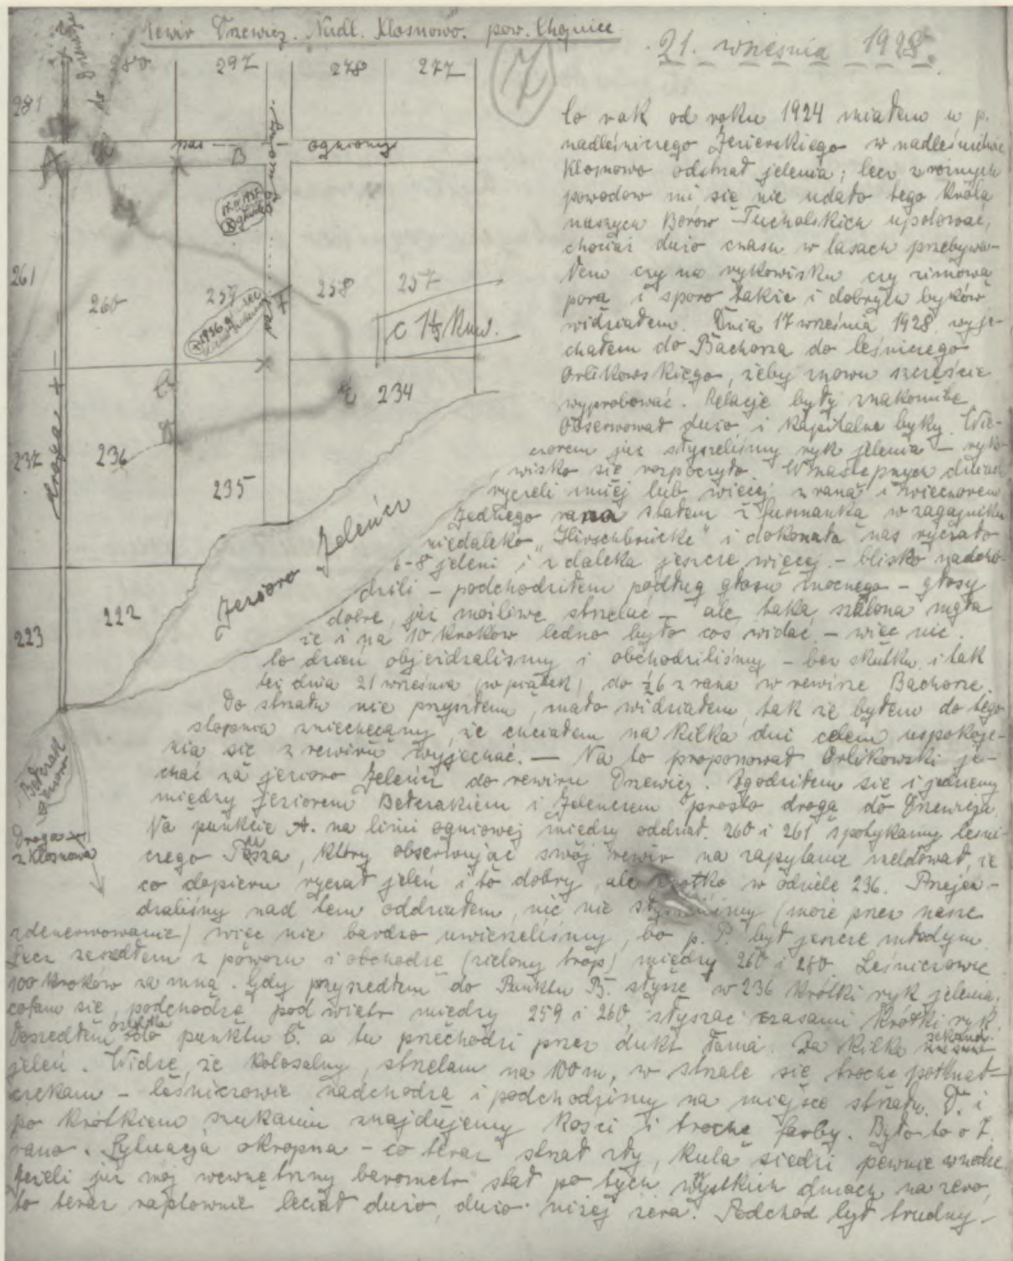 Rewir Drzewicz. Nadl. Klosnowo. pow. Chojnice
7
21. września 1928.
280 292 278 277
281
pas B ogniowy
A
261
260
257 258 257
1936
C
E 234
D
237 236
235
droga
Jezioro Jeleńcz
223 222
Betorak
jezioro
Droga
z Klosnowa
Co rok od roku 1924 miałem u p.
nadleśniczego Jezierskiego w nadleśnictwie
Klosnowo odstrzał jelenia; lecz z różnych
powodow mi się nie udało tego króla
naszych Borow Tucholskich upolować,
chociaż dużo czasu w lasach przebywa-
łem czy na rykowisku czy zimową
porą i sporo także i dobrych byków
widziałem. Dnia 17 września 1928 wyje-
chałem do Bachorza do leśniczego
Orlikowskiego, żeby znowu szczęście
wyprobować. Relacje były znakomite
Obserwował dużo i kapitalne byky. Wie-
czorem już słyszeliśmy ryk jelenia – ryko-
wisko się rozpoczęło. W następnych dniach
ryczeli mniej lub więcej z rana i wieczorem
Jednego rana stałem z furmanką w zagajniku
niedaleko "Hirschbrücke" i dokonała nas ryczało
6-8 jeleni i z daleka jeszcze więcej – blisko nadcho-
dzili – podchodziłem podług głosu mocnego – głosy
dobre, już możliwe strzelać – ale taka szalona mgła
że i na 10 kroków ledno było coś widać – więc nic.
Co dzień objeżdzaliśmy i obchodziliśmy – bez skutku i tak
też dnia 21 września (w piątek), do ½6 z rana w rewirze Bachorze.
Do strzału nie przyszłem, mało widziałem, tak że byłem do tego
stopnia zniechęcony, że chciałem na kilka dni celem uspokoje-
nia się z rewiru wyjechać. – Na to proponował Orlikowski je-
chać za jezioro Jeleńcz do rewiru Drzewicz. Zgodziłem się i jedziemy
między jeziorem Beterakiem i Jelenczem prosto drogą do Drzewicza.
Na punkcie A. na linii ogniowej między oddział. 260 i 261 spotykamy leśni-
czego, który obserwując swój rewir na zapytanie meldował, że
co dopieru ryczał jeleń i to dobry, ale krótko w odziele 236. Przejeż-
dzaliśmy nad tem oddziałem, nic nie słyszeliśmy (może przez nasze
zdenerwowanie) więc nie bardzo uwierzeliśmy, bo p. P. był jeszcze młodym.
Lecz zeszedłem z powozu i obchodzę (zielony trop) między 260 i 280. Leśniczowie
100 kroków za mną. Gdy przyszedłem do Punktu B. słyszę w 236 krótki ryk jelenia,
cofam się, podchodzę pod wiatr między 259 i 260, słysząc czasami krótki ryk.
Doszedłem około punktu C. a tu przechodzi przez dukt łania. Za kilka sekund
jeleń. Widzę, że kolosalny, strzelam na 100 m, w strzale się trochę potknął –
czekam – leśniczowie nadchodzą i podchodzimy na miejsce strzału. D. i
po krótkiem szukaniu znajdujemy kości i trochę farby. Było to o 7.
rano. Sytuacja okropna – co teraz strzał zły, kula siedzi pewnie w nodze.
Jeżeli już mój wewnętrzny barometr stał po tych wszystkich dniach na zero,
to teraz raptownie leciał dużo, dużo niżej zera. Podchod był trudny –